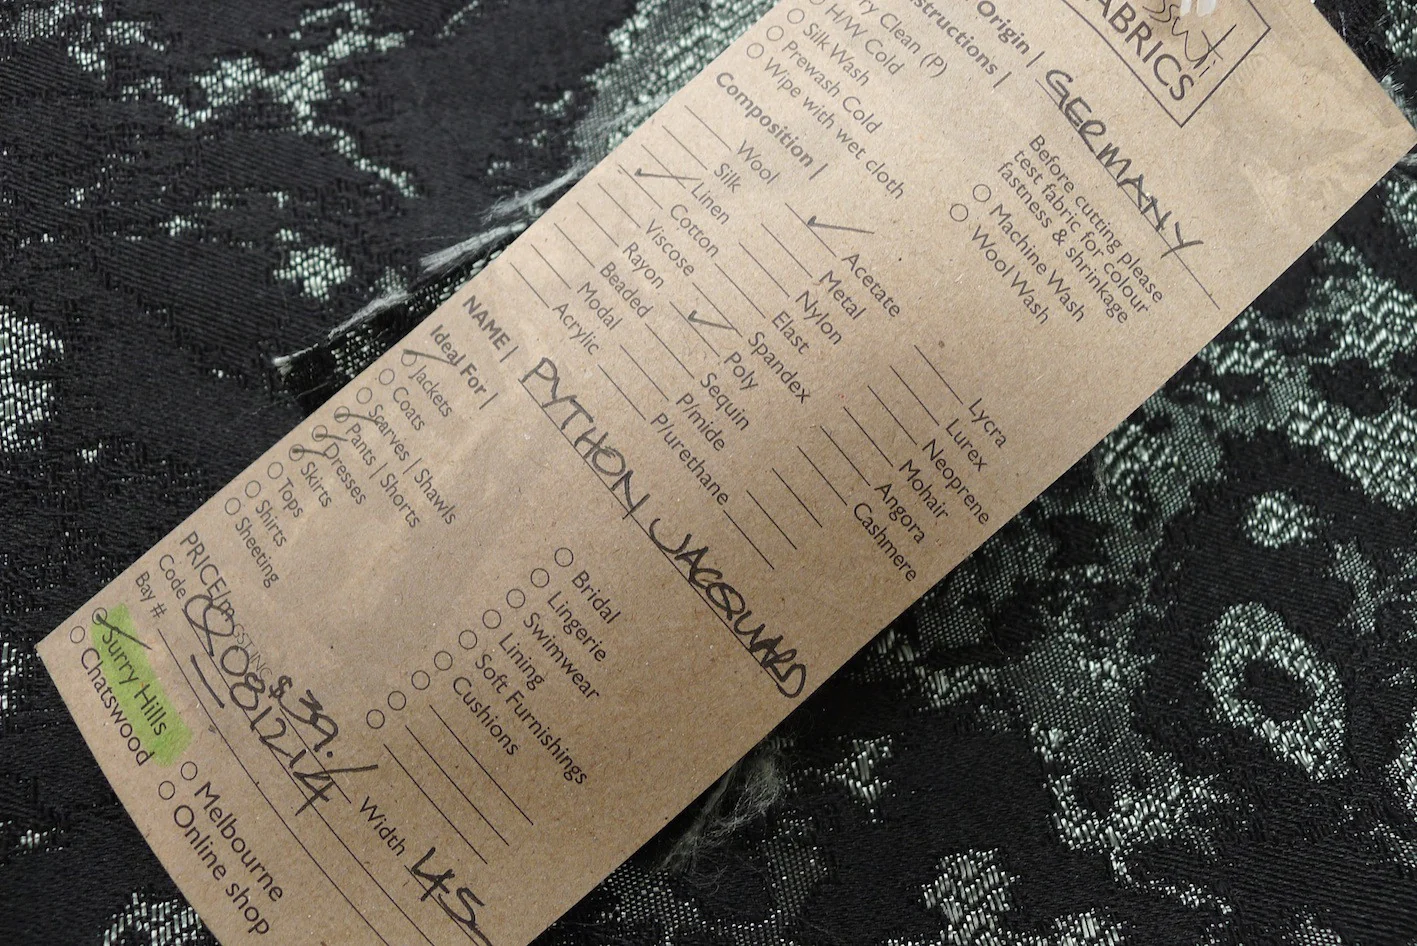 FABRICS
Origin | GERMANY
Instructions |
Dry Clean (P)
H/W Cold
Silk Wash
Prewash Cold
Wipe with wet cloth
Before cutting please
test fabric for colour
fastness & shrinkage
Machine Wash
Wool Wash
Composition |
Wool
Silk
Linen
Cotton
Viscose
Rayon
Beaded
Modal
Acrylic
Acetate
Metal
Nylon
Elast
Spandex
Poly
Sequin
P/mide
P/urethane
Lycra
Lurex
Neoprene
Mohair
Angora
Cashmere
NAME | PYTHON JACQUARD
Ideal For |
Jackets
Coats
Scarves | Shawls
Pants | Shorts
Dresses
Skirts
Tops
Shirts
Sheeting
Bridal
Lingerie
Swimwear
Lining
Soft Furnishings
Cushions
PRICE/m $39.
Width 145
Code
Bay #
Surry Hills
Chatswood
Melbourne
Online shop